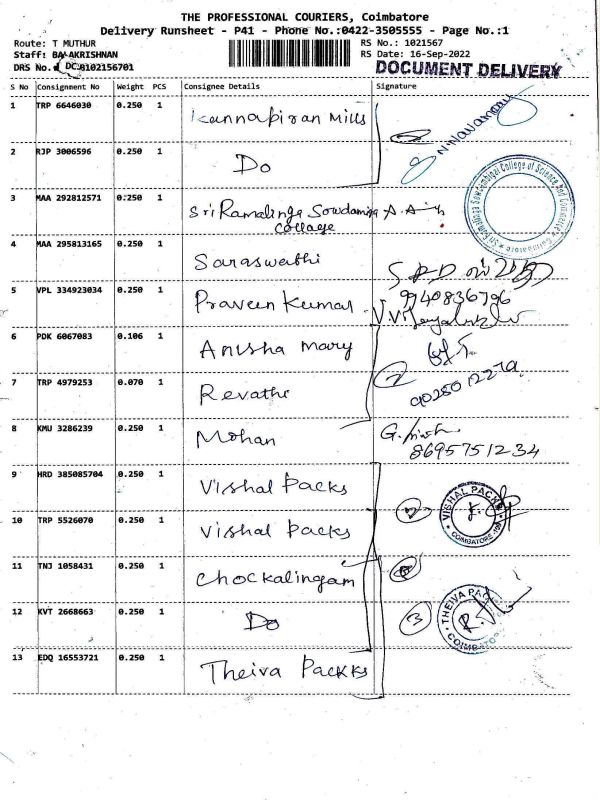 THE PROFESSIONAL COURIERS, Coimbatore
Delivery Runsheet - P41 - Phone No.:0422-3505555 - Page No.:1
Route: T MUTHUR
RS No.: 1021567
Staff: BALAKRISHNAN
RS Date: 16-Sep-2022
DRS No. DC:8102156701
DOCUMENT DELIVERY
S No Consignment No Weight PCS Consignee Details Signature
1 TRP 6646030 0.250 1 Kannapiran Mills
2 RJP 3006596 0.250 1 Do
3 MAA 292812571 0.250 1 Sri Ramalinga Sowdambiga
College
4 MAA 295813165 0.250 1 Saraswathi
5 VPL 334923034 0.250 1 Praveen Kumar 9940836796
6 PDK 6067083 0.106 1 Anusha Mary
7 TRP 4979253 0.070 1 Revathi 2
8 KMU 3286239 0.250 1 Mohan
8695751234
9 HRD 385085704 0.250 1 Vishal Packs VISHAL PACKS
COIMBATORE
10 TRP 5526070 0.250 1 Vishal Packs
11 TNJ 1058431 0.250 1 Chockalingam
12 KVT 2668663 0.250 1 Do 3 THEIVA PACK
COIMBATO
13 EDQ 16553721 0.250 1 Theiva Packks